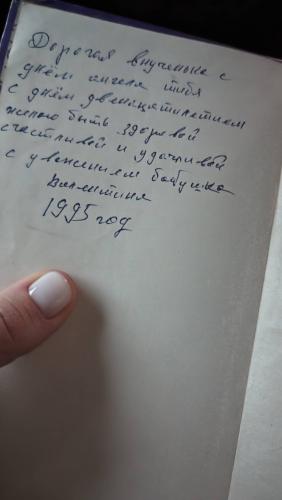 Дорогая внученька с
днём ангела тибя
с днём двенадцатилетием
желаю быть здоровой
счастливой и удачливой
с уважением бабушка
Валентина
1995 год